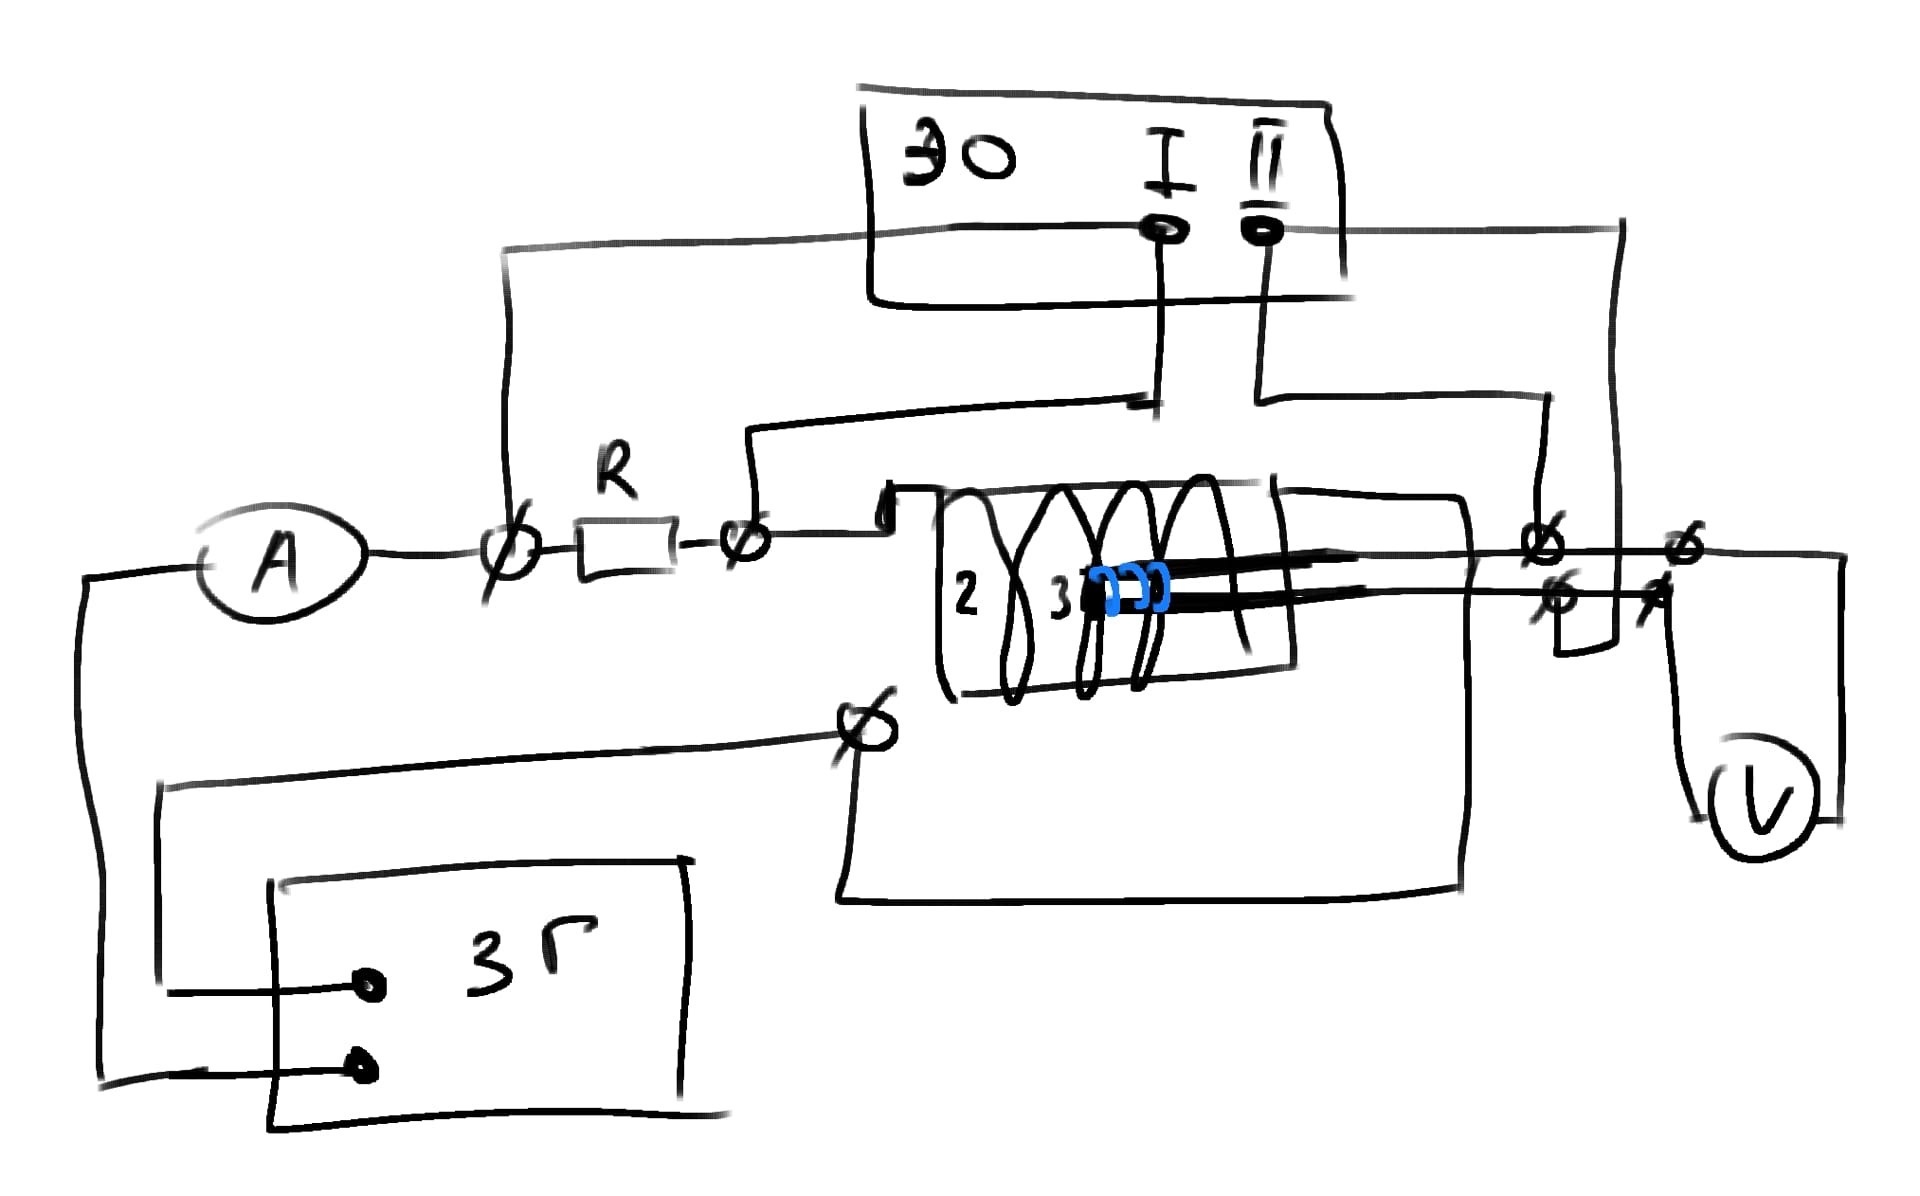 ЭО I II
R
A
2 3
V
ЗГ